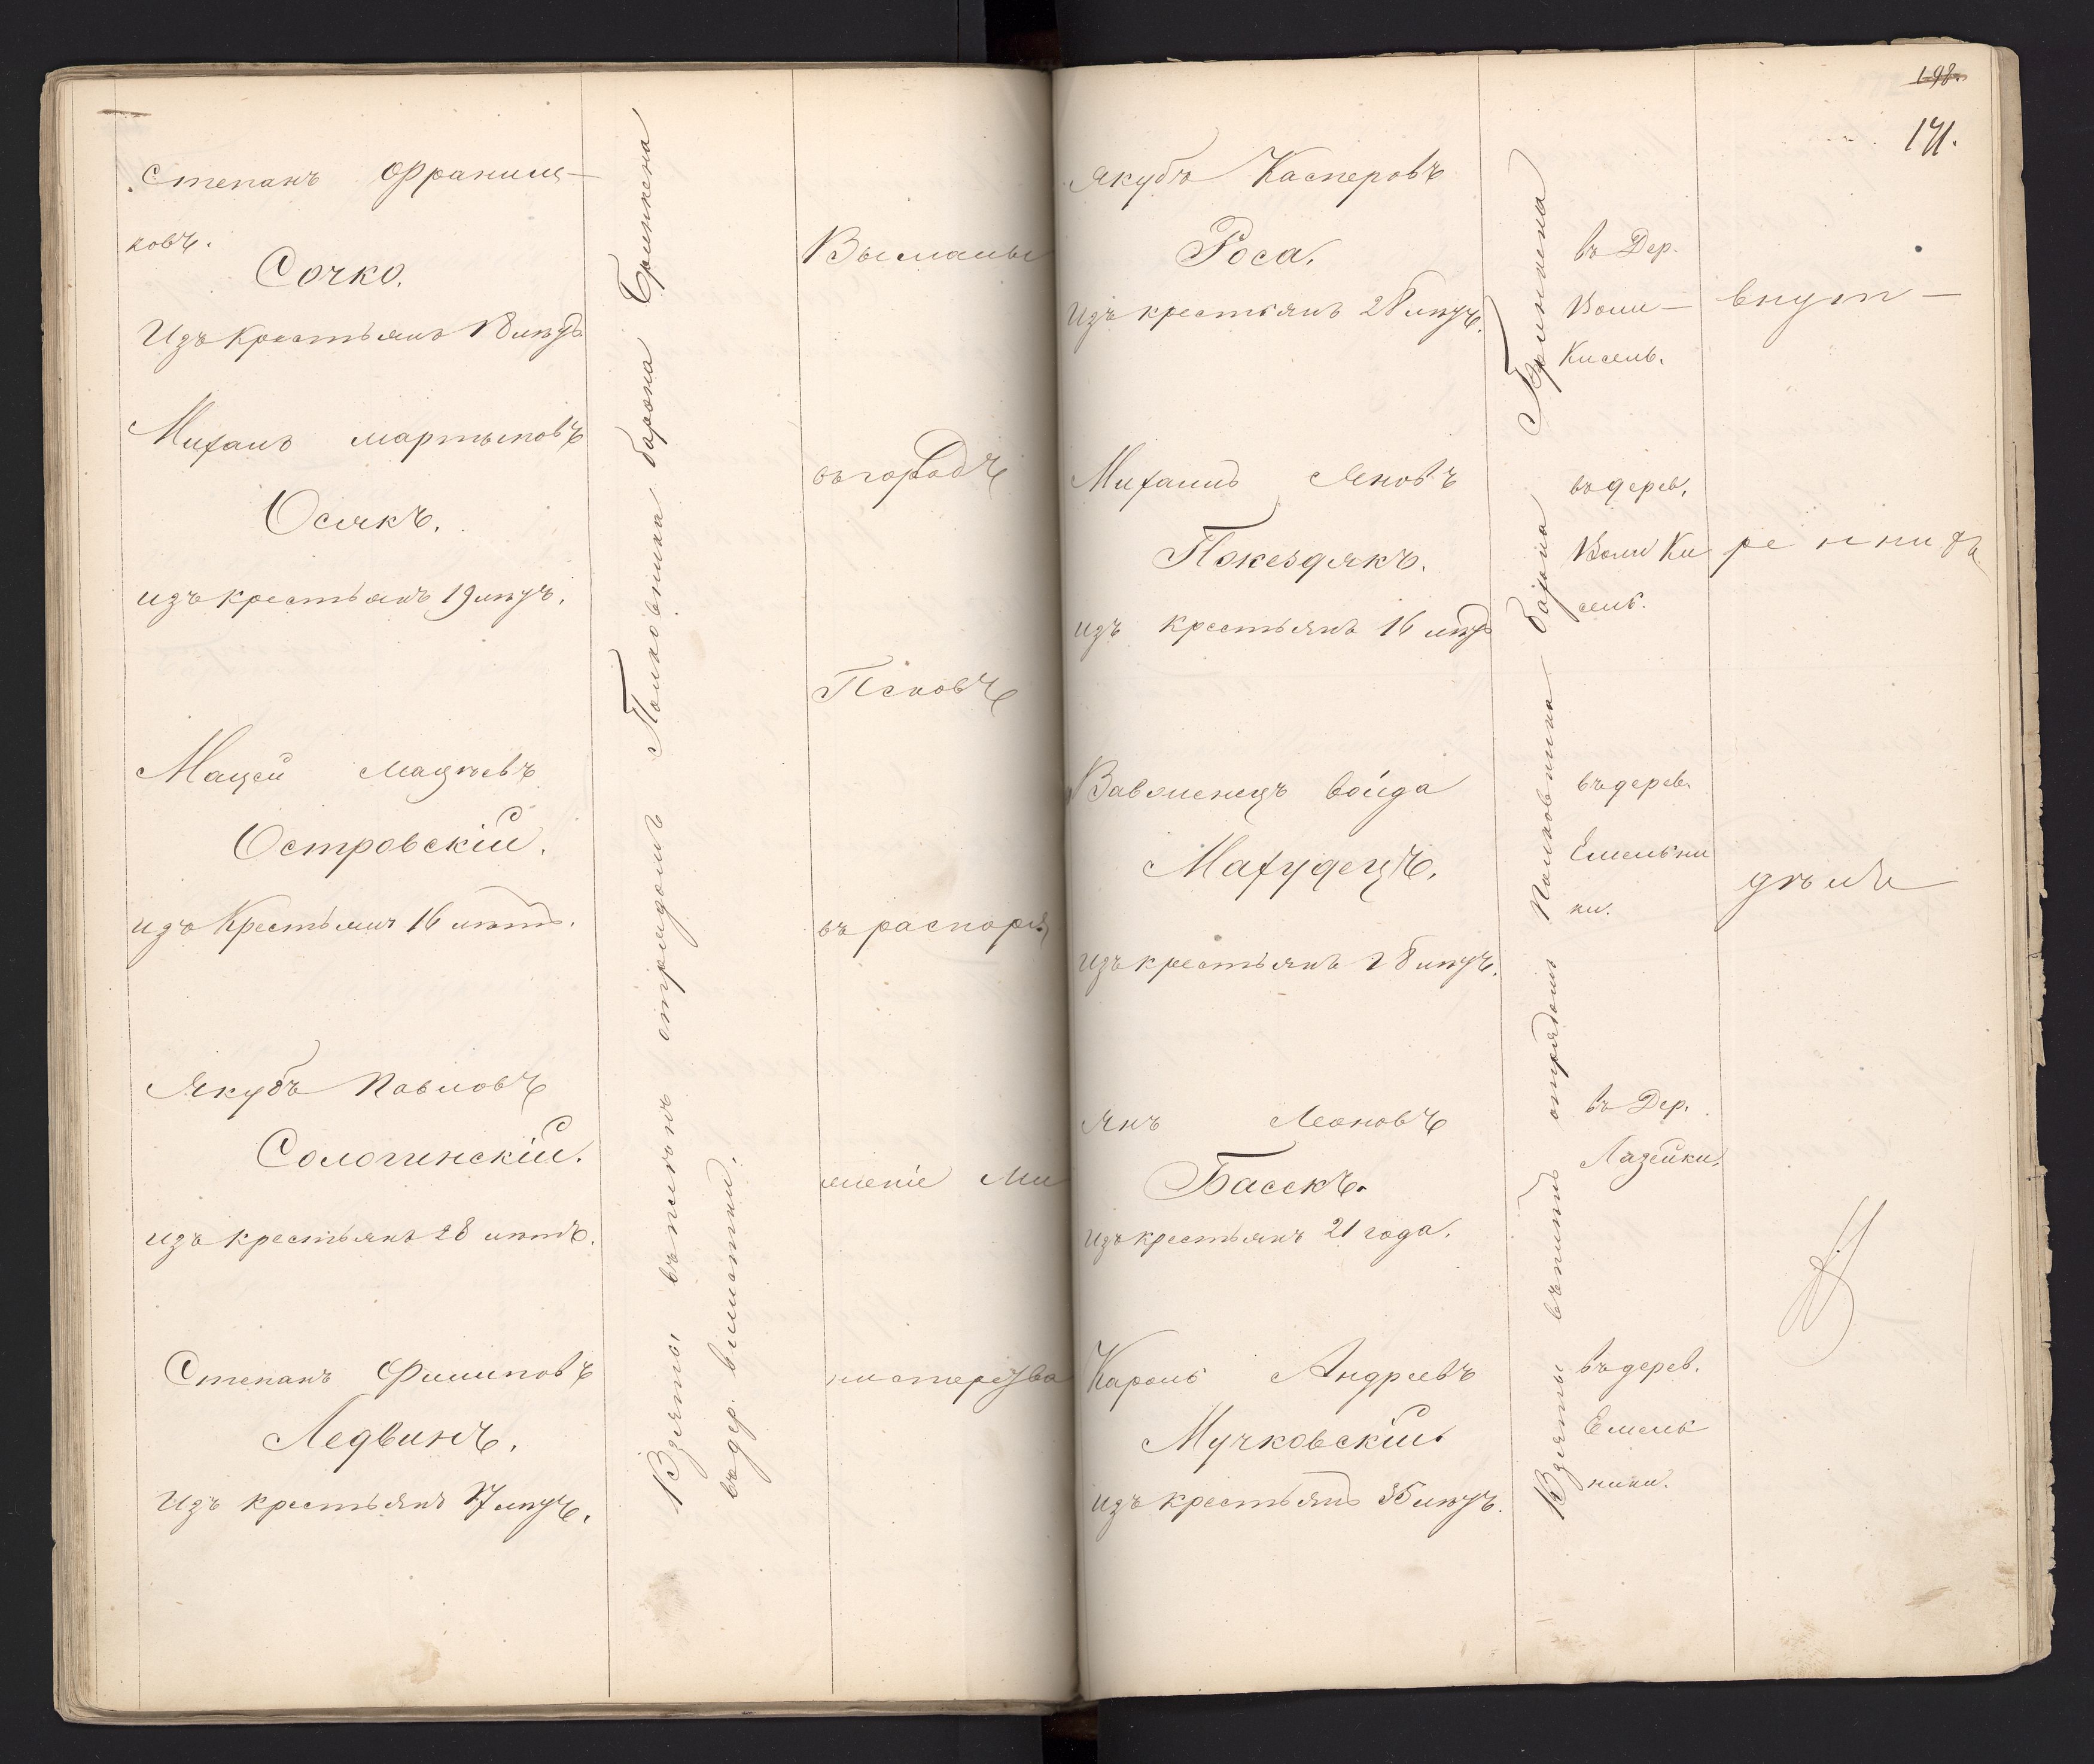 Степанъ Францис-
ковъ.
Сочко.
Изъ Крестьянъ 18 лѣтъ.
Михалъ Мартыновъ
Осякъ.
изъ крестьянъ 19 лѣтъ.
Мацей Мацѣевъ
Островскій.
изъ Крестьянъ 16 лѣтъ.
Якубъ Павловъ
Сологинскій.
изъ крестьянъ 28 лѣтъ.
Степанъ Филиповъ
Ледвинъ.
Изъ крестьянъ 17 лѣтъ.
Взяты въ плѣнъ отрядомъ Полковника барона Бринкена
въ дер.
Высланы
въ городъ
Псковъ
въ распоря
женіе Ми
нистерства
198.
171.
Якубъ Касперовъ
Роса.
Изъ крестьянъ 28 лѣтъ.
Михаилъ Яновъ
Покездякъ.
изъ крестьянъ 16 лѣтъ
Вавженецъ Войда
Махудецъ.
Изъ крестьянъ 28 лѣтъ.
Янъ Леоновъ
Басекъ.
Изъ крестьянъ 21 года.
Кароль Андреевъ
Мучковскій.
изъ крестьянъ 35 лѣтъ.
Взяты въ плѣнъ отрядомъ Полковника барона Бринкена
въ Дер.
Воли-
Кисель.
въ дерев.
Воли Ки
сель.
въ дерев.
Емельни
ки.
въ Дер.
Лазейки.
въ дерев.
Емель
ники.
внут-
реннихъ
дѣлъ